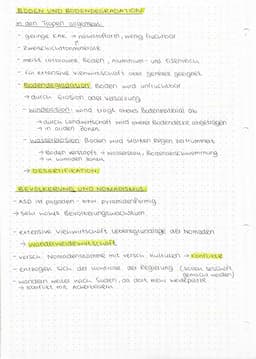 BODEN UND BODENDEGRADATION
in den Tropen allgemein:
- geringe KAK → nährstoffarm, wenig fruchtbar
- Zweischichttonminerale
- meist lateritische Böden, Aluminium- und Eisenreich
- für extensive Viehwirtschaft oder gemüse geeignet
- Bodendegradation: Boden wird unfruchtbar
→ durch Erosion oder Versalzung
- Winderosion: Wind trägt oberes Bodenmaterial ab
→ durch Landwirtschaft wird obere Bodendecke abgetragen
→ in ariden Zonen
- Wassererosion: Boden wird starken Regen
→ Boden verstopft → Wasserstau, Bodenabschwemmung
→ in humiden Zonen
→ DESERTIFIKATION
BEVÖLKERUNG UND NOMADISMUS:
- ASD ist pyramidenförmig
→ sehr hohes Bevölkerungswachstum
- extensive Viehwirtschaft Lebensgrundlage der Nomaden
→ Wanderweidewirtschaft
- versch. Nomadenstämme mit versch. Kulturen → Konflikte
- entziehen sich der Kontrolle der Regierung (sollen sesshaft
gemacht werden)
- wandern weiter nach Süden, da dort mehr Weideplätze
→ Konflikt mit Ackerbauern